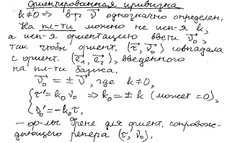 Ориентированная кривизна
k≠0 ⇒ в т. ν̄ однозначно определен,
На пл-ти можно не исп-я k,
а исп-я ориентацию ввести ν̄₀,
так чтобы ориент. (τ̄, ν̄₀) совпадала
с ориент. введенного
на пл-ти базиса,
ν̄₀ = ± ν̄, где k≠0,
τ̄' = k₀ν̄₀ ⇒ k₀ = ± k (может =0),
ν̄₀' = -k₀τ̄,
- ф-лы Френе для ориент. сопровож-
дающего репера (τ̄, ν̄₀).